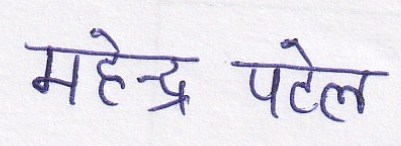 महेन्द्र पटेल